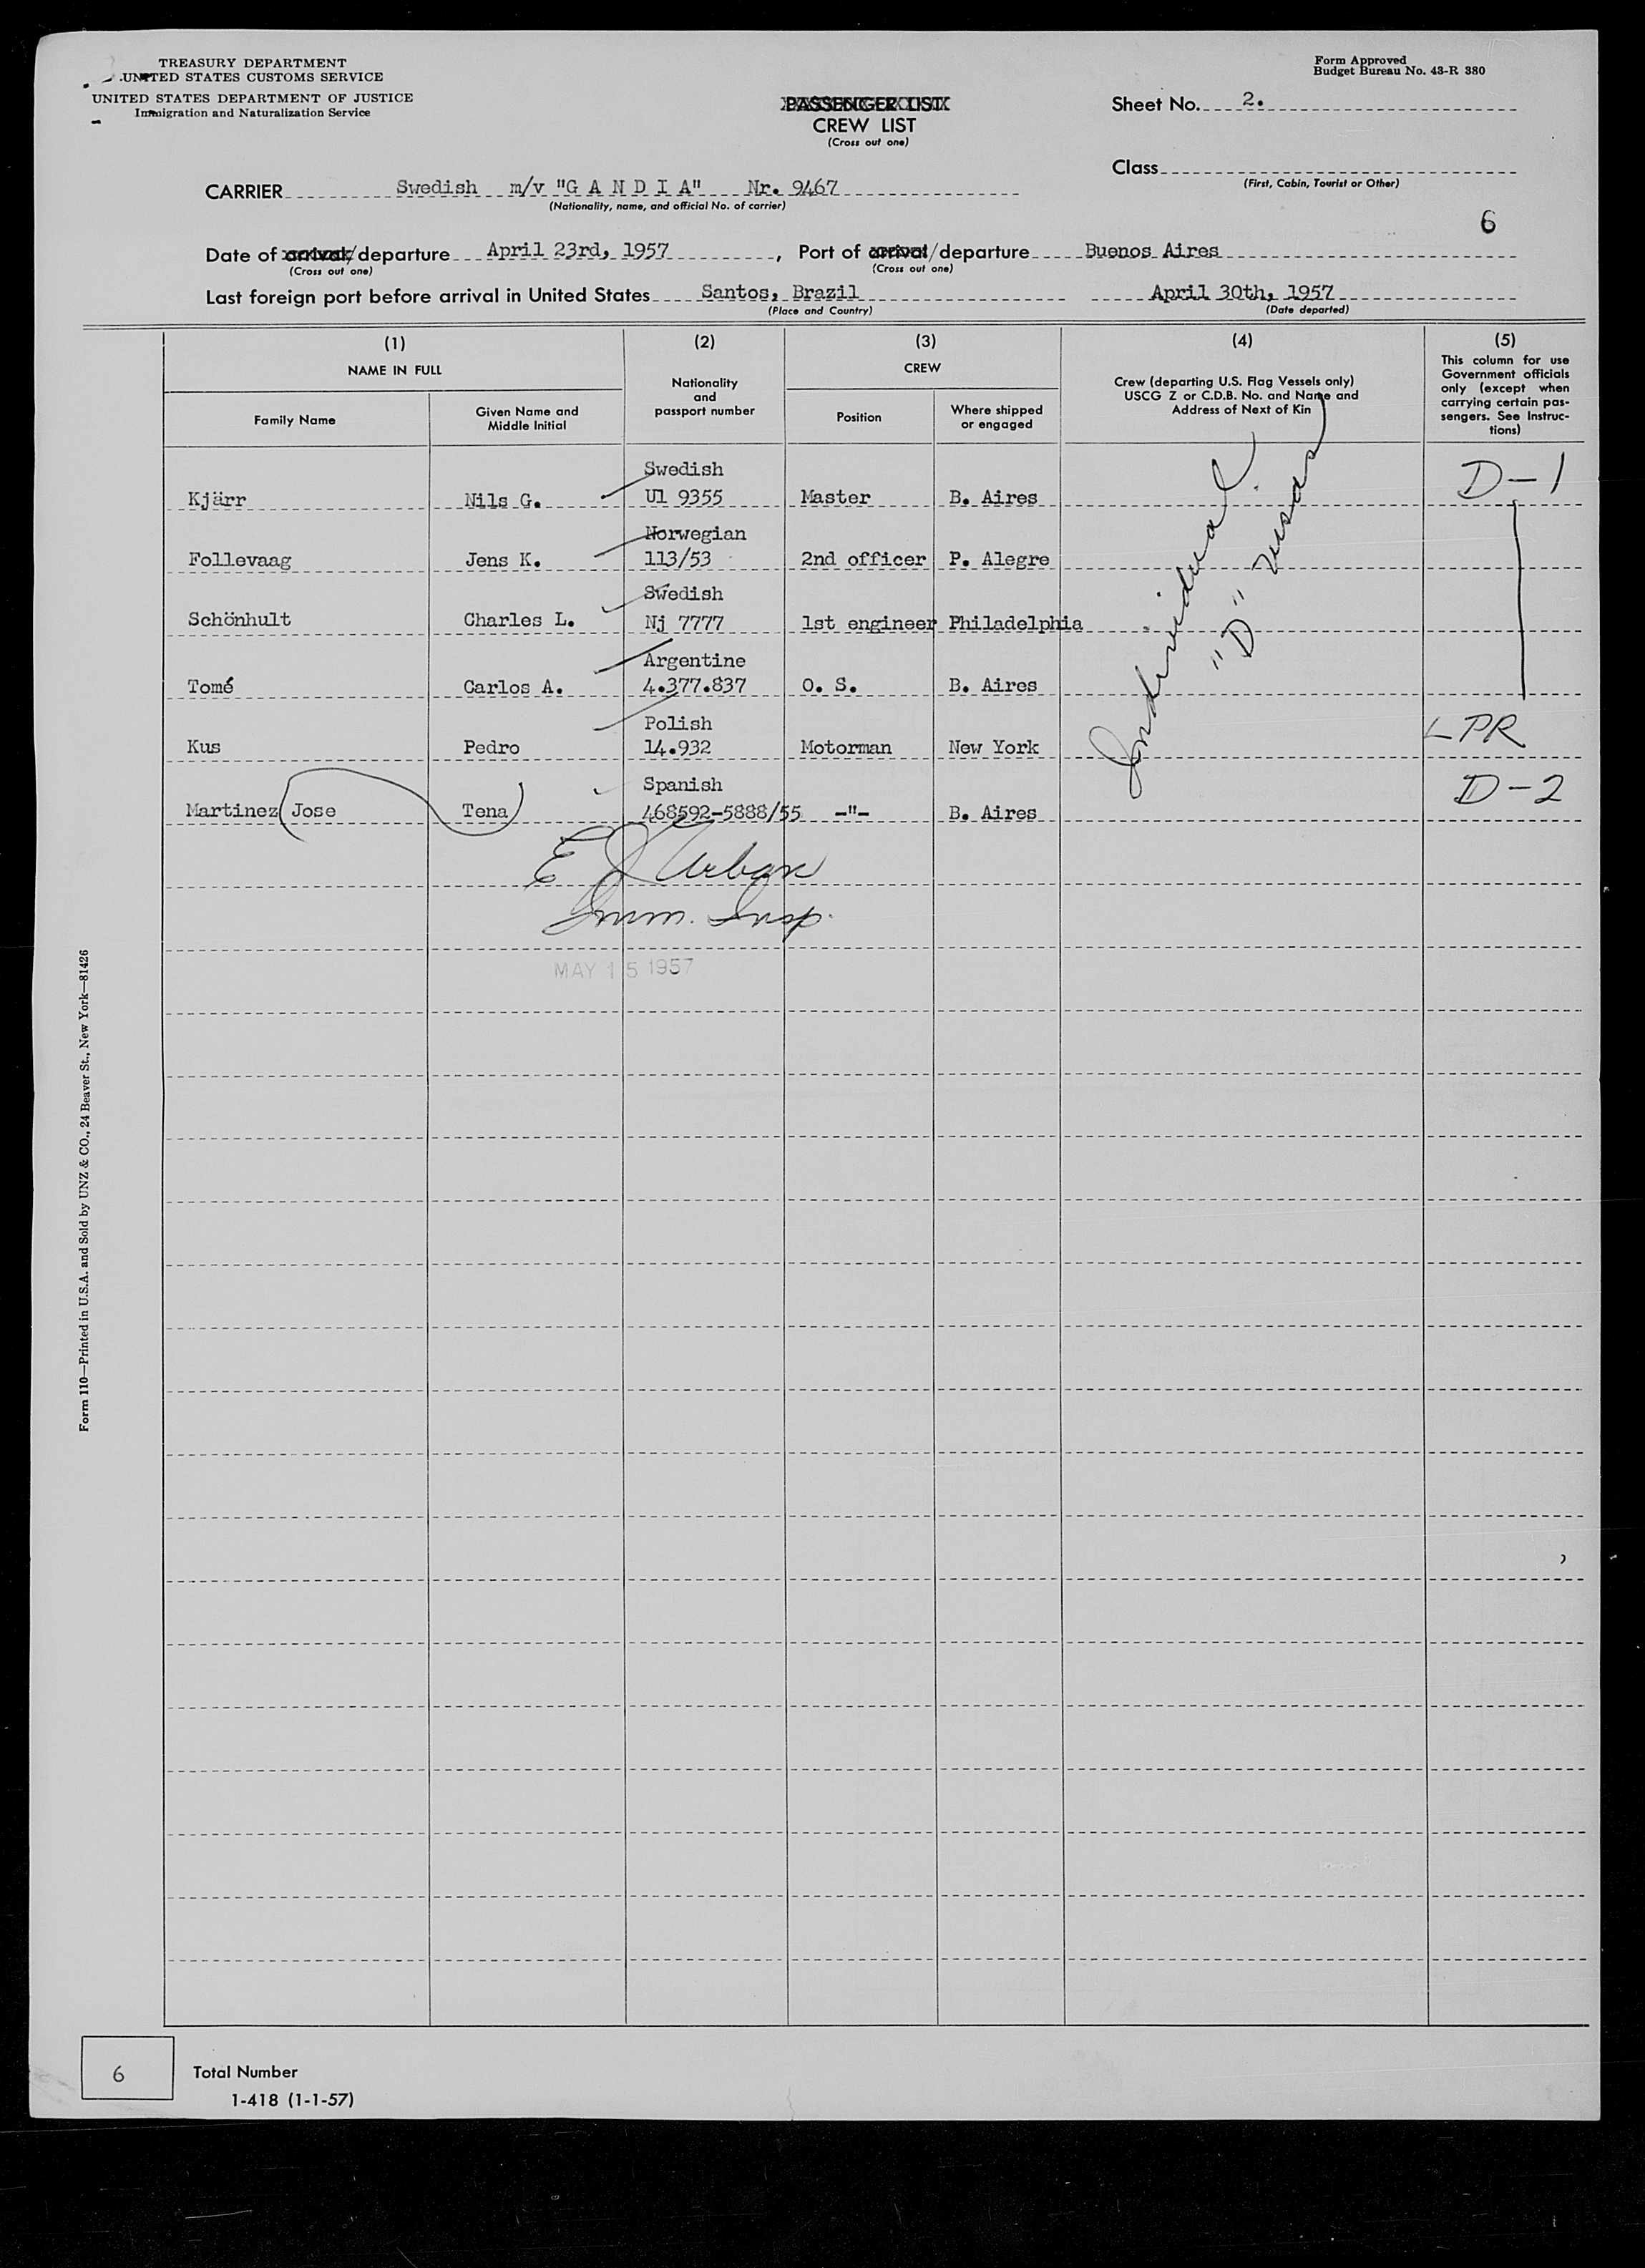 TREASURY DEPARTMENT
UNITED STATES CUSTOMS SERVICE
UNITED STATES DEPARTMENT OF JUSTICE
Immigration and Naturalization Service
Form Approved
Budget Bureau No. 43-R 380
PASSENGER LIST
CREW LIST
(Cross out one)
Sheet No. 2.
Class
(First, Cabin, Tourist or Other)
CARRIER Swedish m/v "G A N D I A" Nr. 9467
(Nationality, name, and official No. of carrier)
6
Date of arrival/departure April 23rd, 1957, Port of arrival/departure Buenos Aires
(Cross out one) (Cross out one)
Last foreign port before arrival in United States Santos, Brazil April 30th, 1957
(Place and Country) (Date departed)
(1) (2) (3) (4) (5)
NAME IN FULL
Family Name
Given Name and
Middle Initial
Nationality
and
passport number
CREW
Position
Where shipped
or engaged
Crew (departing U.S. Flag Vessels only)
USCG Z or C.D.B. No. and Name and
Address of Next of Kin
This column for use
Government officials
only (except when
carrying certain pas-
sengers. See Instruc-
tions)
Swedish
Kjärr Nils G. Ul 9355 Master B. Aires D-1
Norwegian
Follevaag Jens K. 113/53 2nd officer P. Alegre
Swedish
Schönhult Charles L. Nj 7777 1st engineer Philadelphia
Argentine
Tomé Carlos A. 4.377.837 O. S. B. Aires
Polish
Kus Pedro 14.932 Motorman New York LPR
Spanish
Martinez Jose Tena 468592-5888/55 -"- B. Aires D-2
Individual
"D" visas
E J Urban
Imm. Insp.
MAY 15 1957
Form 110—Printed in U.S.A. and Sold by UNZ & CO., 24 Beaver St., New York—81426
6 Total Number
1-418 (1-1-57)